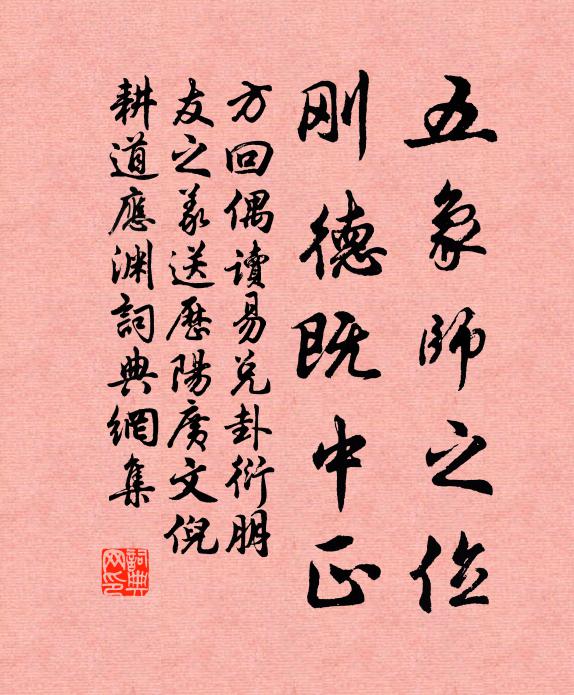 五象師之位
刚德既中正
方回偶讀易兌卦衍朋
友之義送歷陽廣文倪
耕道應渊詞典網集
詞典
网印